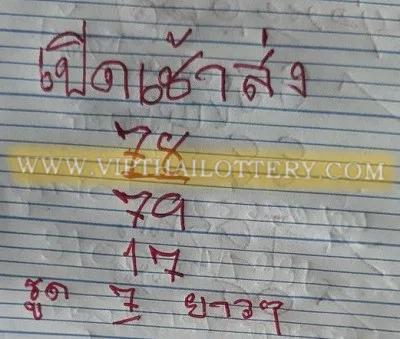 เปิดเช้าส่ง
78
WWW.VIPTHAILOTTERY.COM
79
17
รูด 7 ยาวๆ